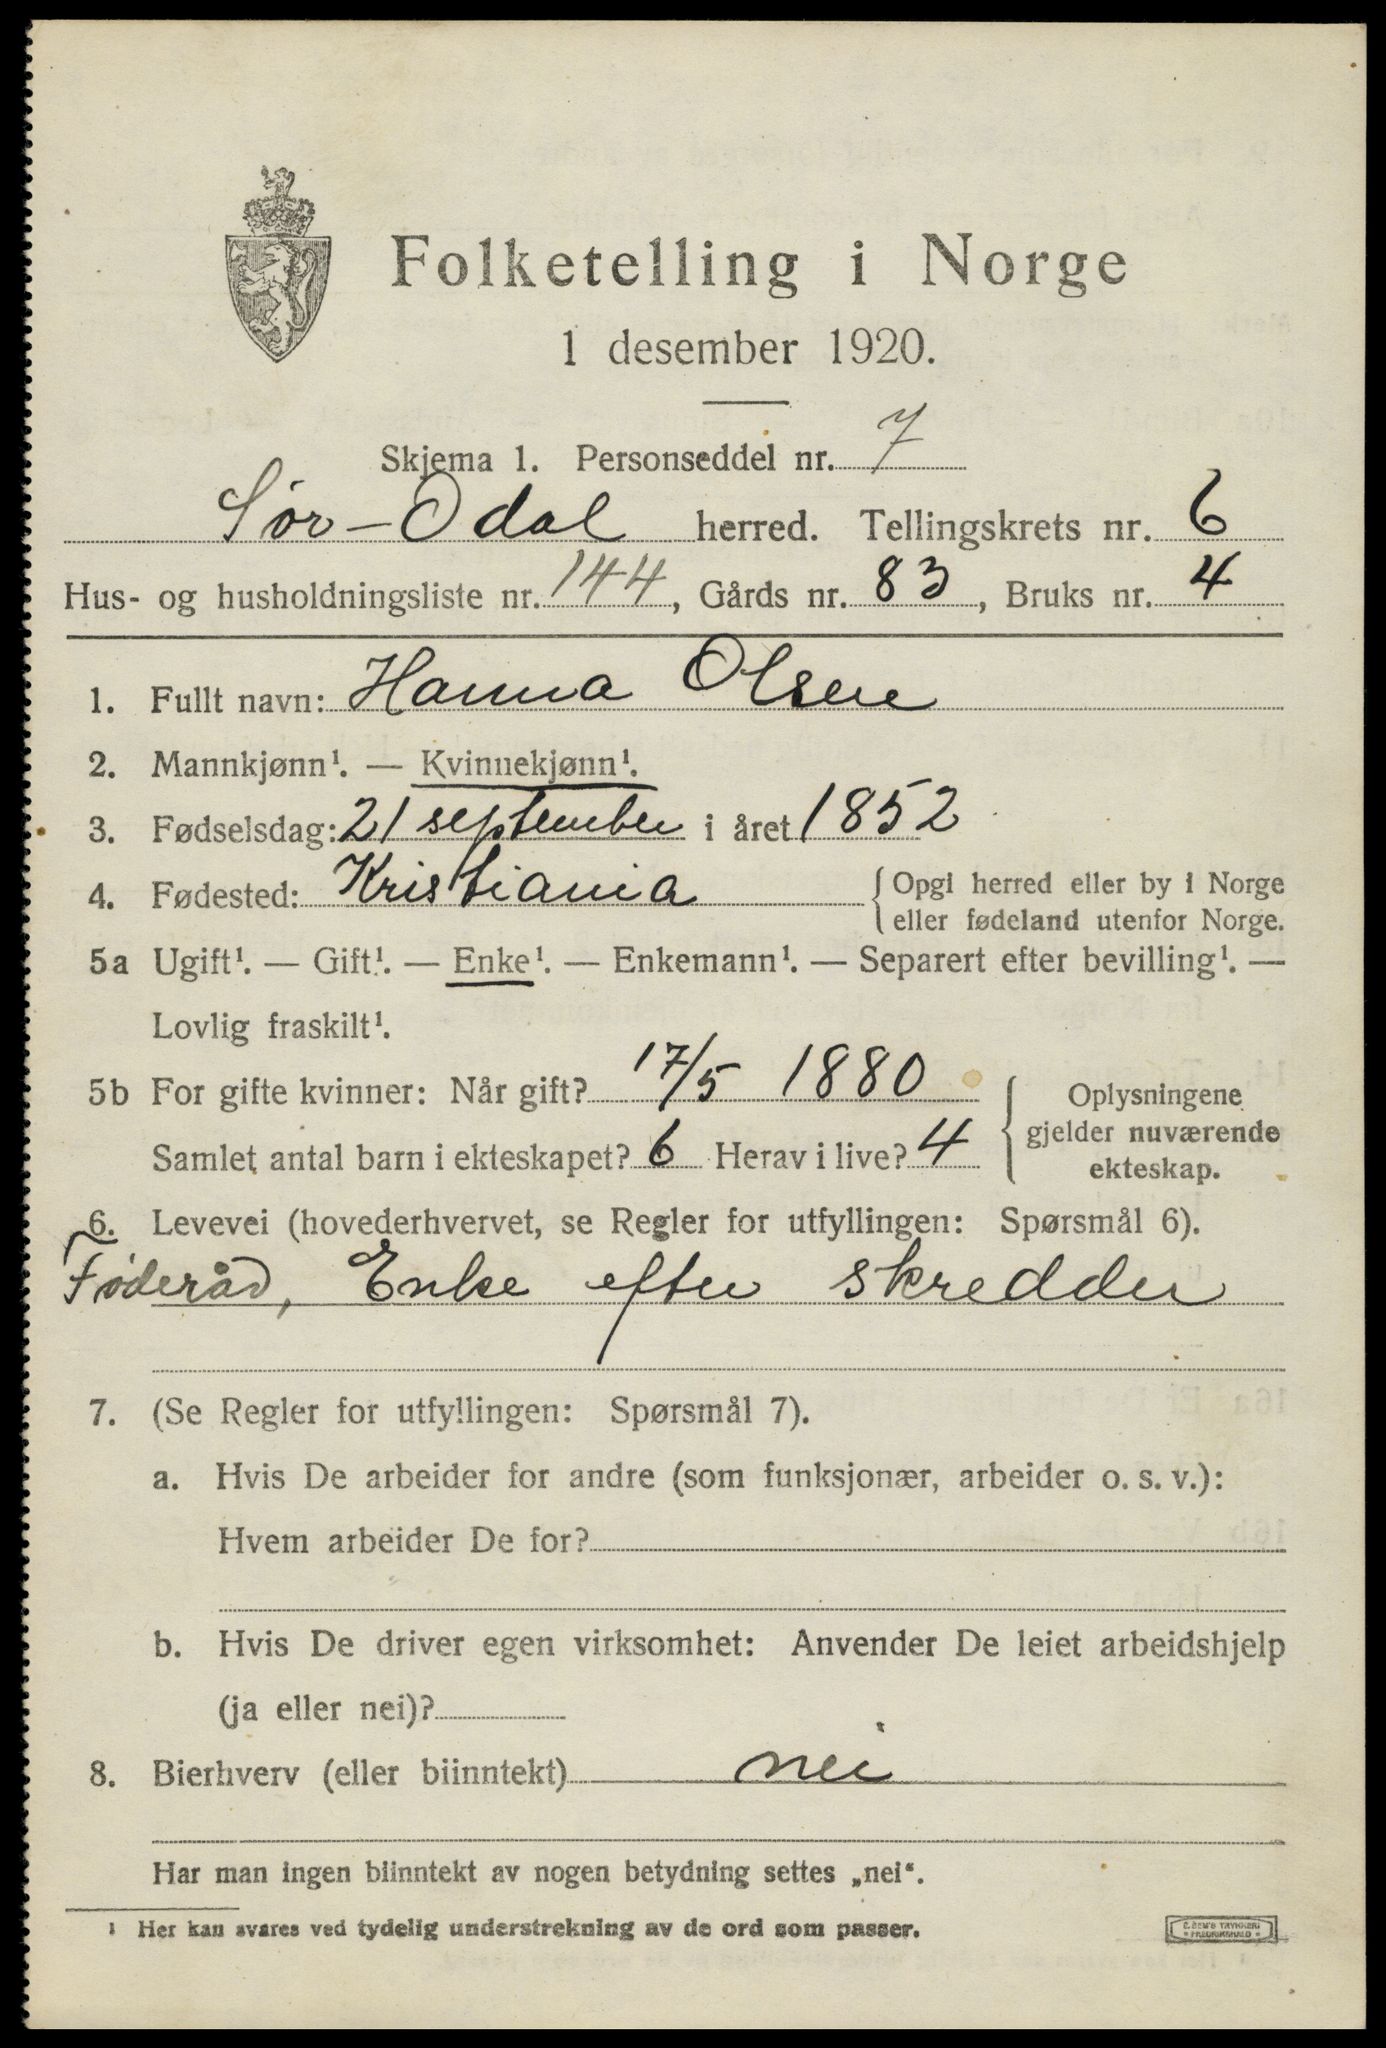 Folketelling i Norge
1 desember 1920.
Skjema 1. Personseddel nr. 7
Sør-Odal herred. Tellingskrets nr. 6
Hus- og husholdningsliste nr. 144, Gårds nr. 83, Bruks nr. 4
1. Fullt navn: Hanna Olsen
2. Mannkjønn¹. — Kvinnekjønn¹.
3. Fødselsdag: 21 september i året 1852
4. Fødested: Kristiania {Opgi herred eller by i Norge
eller fødeland utenfor Norge.
5a Ugift¹. — Gift¹. — Enke¹. — Enkemann¹. — Separert efter bevilling¹. —
Lovlig fraskilt¹.
5b For gifte kvinner: Når gift? 17/5 1880
Samlet antal barn i ekteskapet? 6 Herav i live? 4
{Oplysningene
gjelder nuværende
ekteskap.
6. Levevei (hovederhvervet, se Regler for utfyllingen: Spørsmål 6).
Føderåd, Enke efter skredder
7. (Se Regler for utfyllingen: Spørsmål 7).
a. Hvis De arbeider for andre (som funksjonær, arbeider o. s. v.):
Hvem arbeider De for?
b. Hvis De driver egen virksomhet: Anvender De leiet arbeidshjelp
(ja eller nei)?
8. Bierhverv (eller biinntekt) nei
Har man ingen biinntekt av nogen betydning settes „nei“.
¹ Her kan svares ved tydelig understrekning av de ord som passer.
FREDRIKSHALD